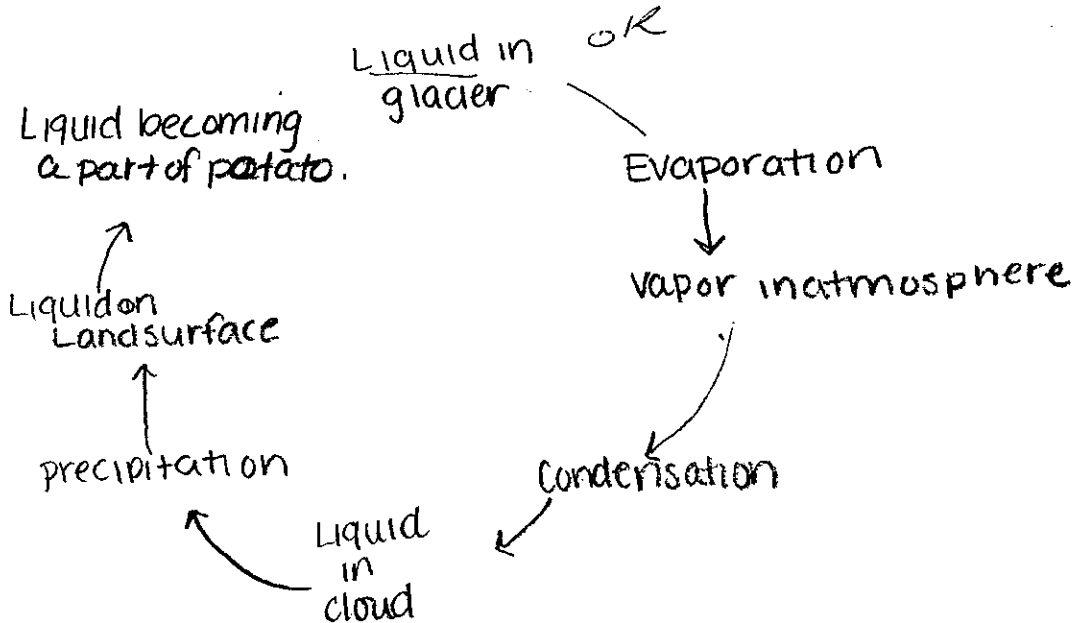 Liquid in
glacier
OK
Evaporation
vapor inatmosphere
Condensation
Liquid
in
cloud
precipitation
Liquidon
Landsurface
Liquid becoming
a part of potato.